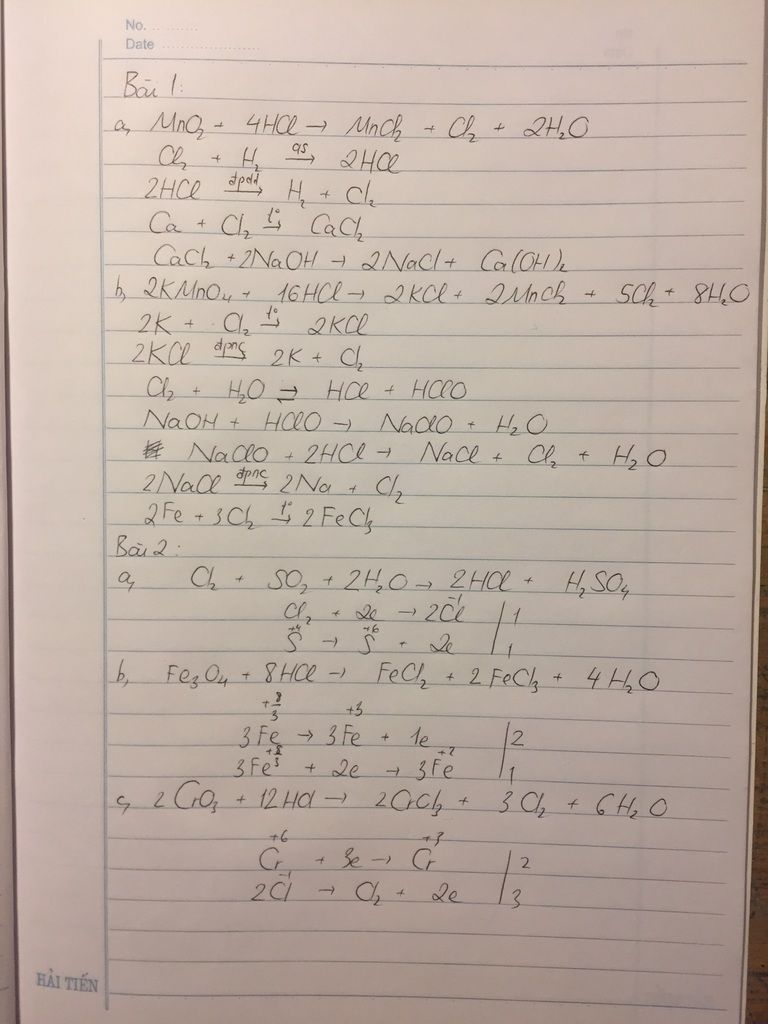 No. ..........
Date ......................
Bài 1:
a, MnO₂ + 4HCl → MnCl₂ + Cl₂ + 2H₂O
Cl₂ + H₂ —as→ 2HCl
2HCl —đpdd→ H₂ + Cl₂
Ca + Cl₂ —t°→ CaCl₂
CaCl₂ + 2NaOH → 2NaCl + Ca(OH)₂
b, 2KMnO₄ + 16HCl → 2KCl + 2MnCl₂ + 5Cl₂ + 8H₂O
2K + Cl₂ —t°→ 2KCl
2KCl —đpnc→ 2K + Cl₂
Cl₂ + H₂O ⇌ HCl + HClO
NaOH + HClO → NaClO + H₂O
NaClO + 2HCl → NaCl + Cl₂ + H₂O
2NaCl —đpnc→ 2Na + Cl₂
2Fe + 3Cl₂ —t°→ 2FeCl₃
Bài 2:
a, Cl₂ + SO₂ + 2H₂O → 2HCl + H₂SO₄
Cl₂ + 2e → 2Cl⁻¹ | 1
S⁺⁴ → S⁺⁶ + 2e | 1
b, Fe₃O₄ + 8HCl → FeCl₂ + 2FeCl₃ + 4H₂O
3Fe^(+8/3) → 3Fe⁺³ + 1e | 2
3Fe^(+8/3) + 2e → 3Fe⁺² | 1
c, 2CrO₃ + 12HCl → 2CrCl₃ + 3Cl₂ + 6H₂O
Cr⁺⁶ + 3e → Cr⁺³ | 2
2Cl⁻¹ → Cl₂ + 2e | 3
HẢI TIẾN